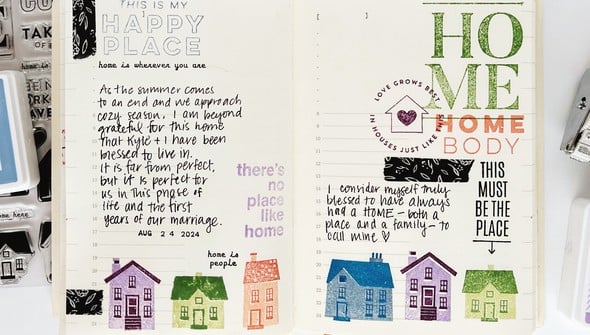 THIS IS MY
HAPPY
PLACE
home is wherever you are
As the summer comes
to an end and we approach
cozy season, I am beyond
grateful for this home
that Kyle + I have been
blessed to live in.
It is far from perfect,
but it is perfect for
us in this phase of
life and the first
years of our marriage.
AUG 24 2024
there's
no
place
like
home
home is
people
HO
ME
LOVE GROWS BEST
IN HOUSES JUST LIKE THIS
HOME
BODY
I consider myself truly
blessed to have always
had a HOME - both a
place and a family - to
call mine ♡
THIS
MUST
BE THE
PLACE